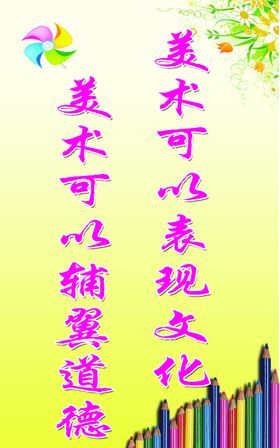 美术可以表现文化
美术可以辅翼道德